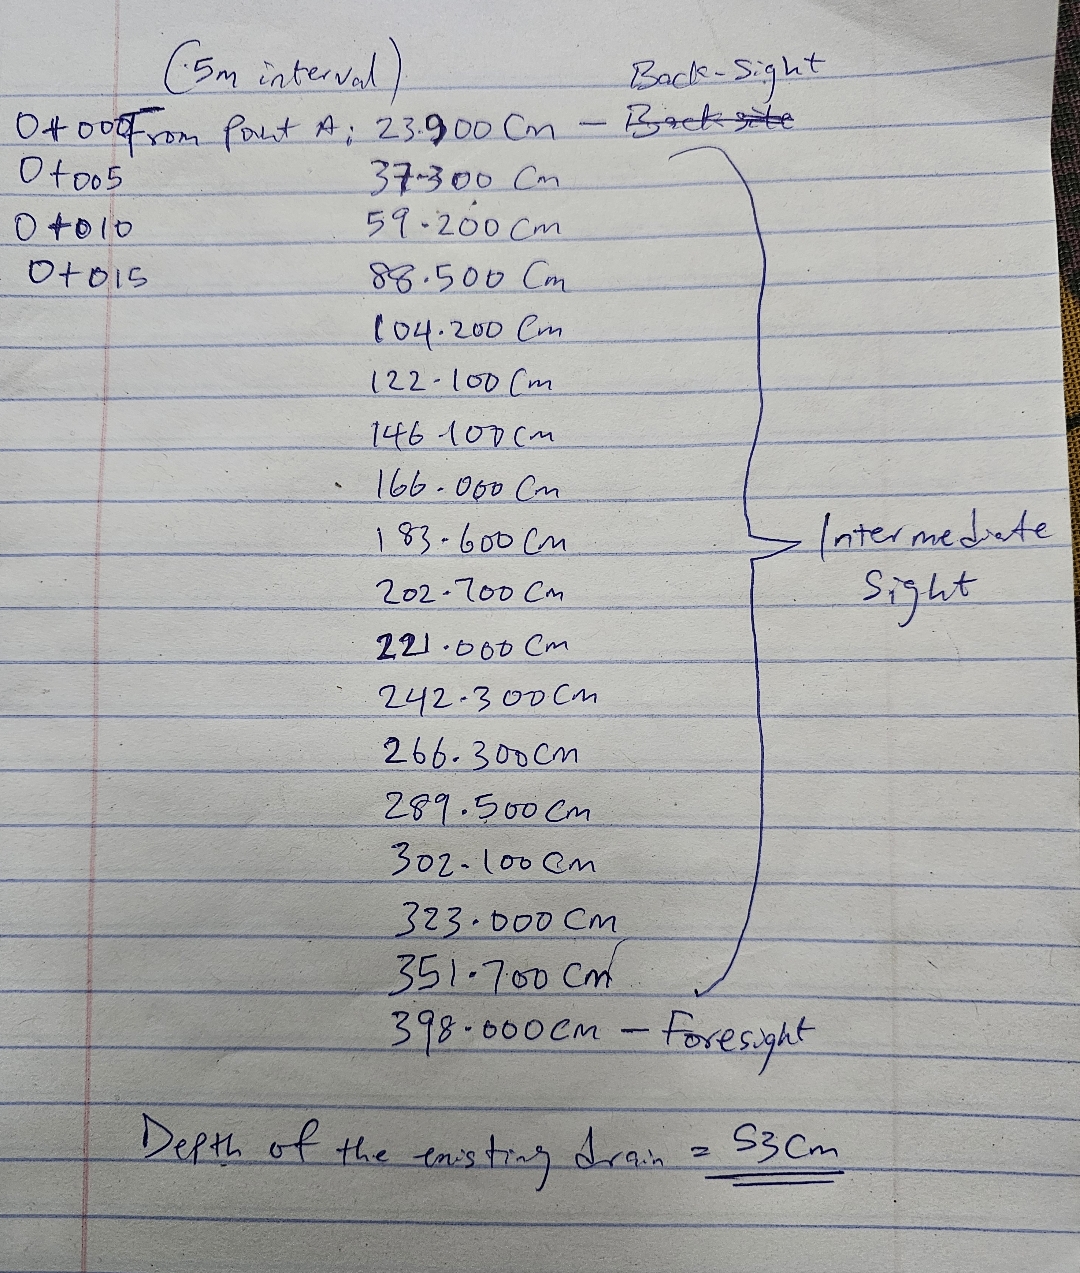 (5m interval)
Back-Sight
0+000 From Point A; 23.900 Cm - Back site
0+005 37.300 Cm
0+010 59.200 Cm
0+015 88.500 Cm
104.200 Cm
122.100 Cm
146.100 Cm
166.000 Cm
183.600 Cm
202.700 Cm
221.000 Cm
242.300 Cm
266.300 Cm
289.500 Cm
302.100 Cm
323.000 Cm
351.700 Cm
Intermediate
Sight
398.000 Cm - Foresight
Depth of the existing drain = 53 Cm